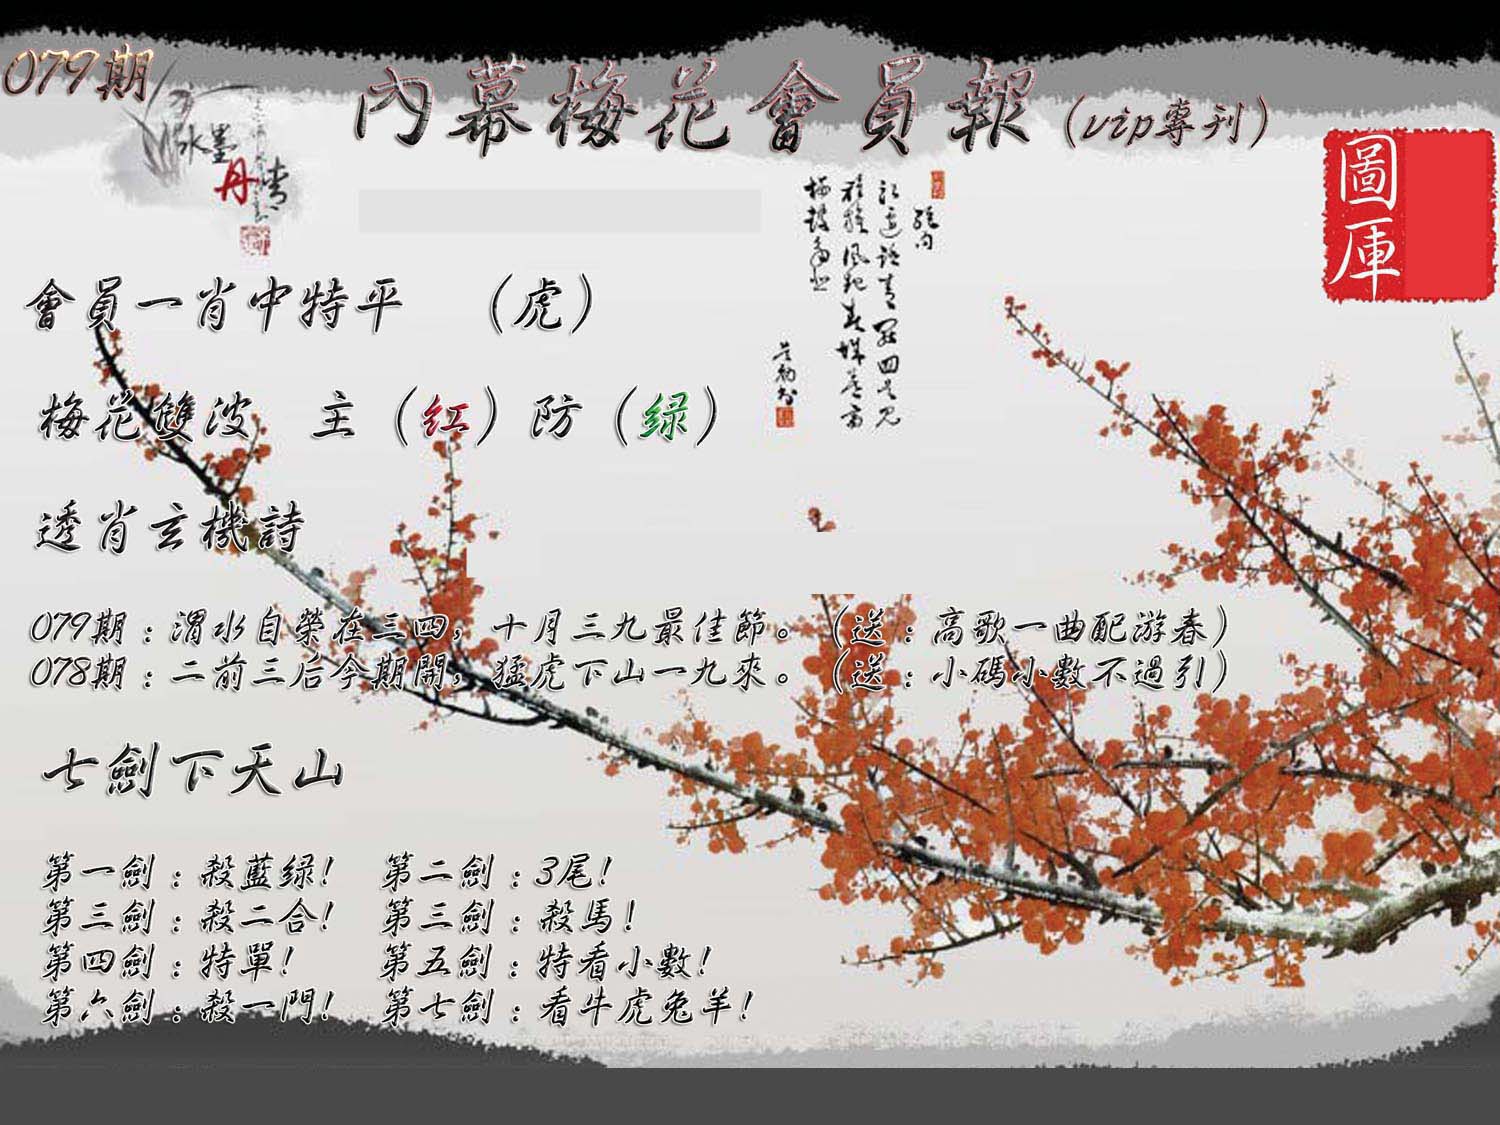 079期
內幕梅花會員報(vip專刊)
水墨
丹青
圖庫
會員一肖中特平 (虎)
梅花雙波 主(红)防(绿)
透肖玄機詩
079期:渭水自榮在三四,十月三九最佳節。(送:高歌一曲配游春)
078期:二前三后今期開,猛虎下山一九來。(送:小碼小數不過引)
七劍下天山
第一劍:殺藍绿! 第二劍:3尾!
第三劍:殺二合! 第三劍:殺馬!
第四劍:特單! 第五劍:特看小數!
第六劍:殺一門! 第七劍:看牛虎兔羊!